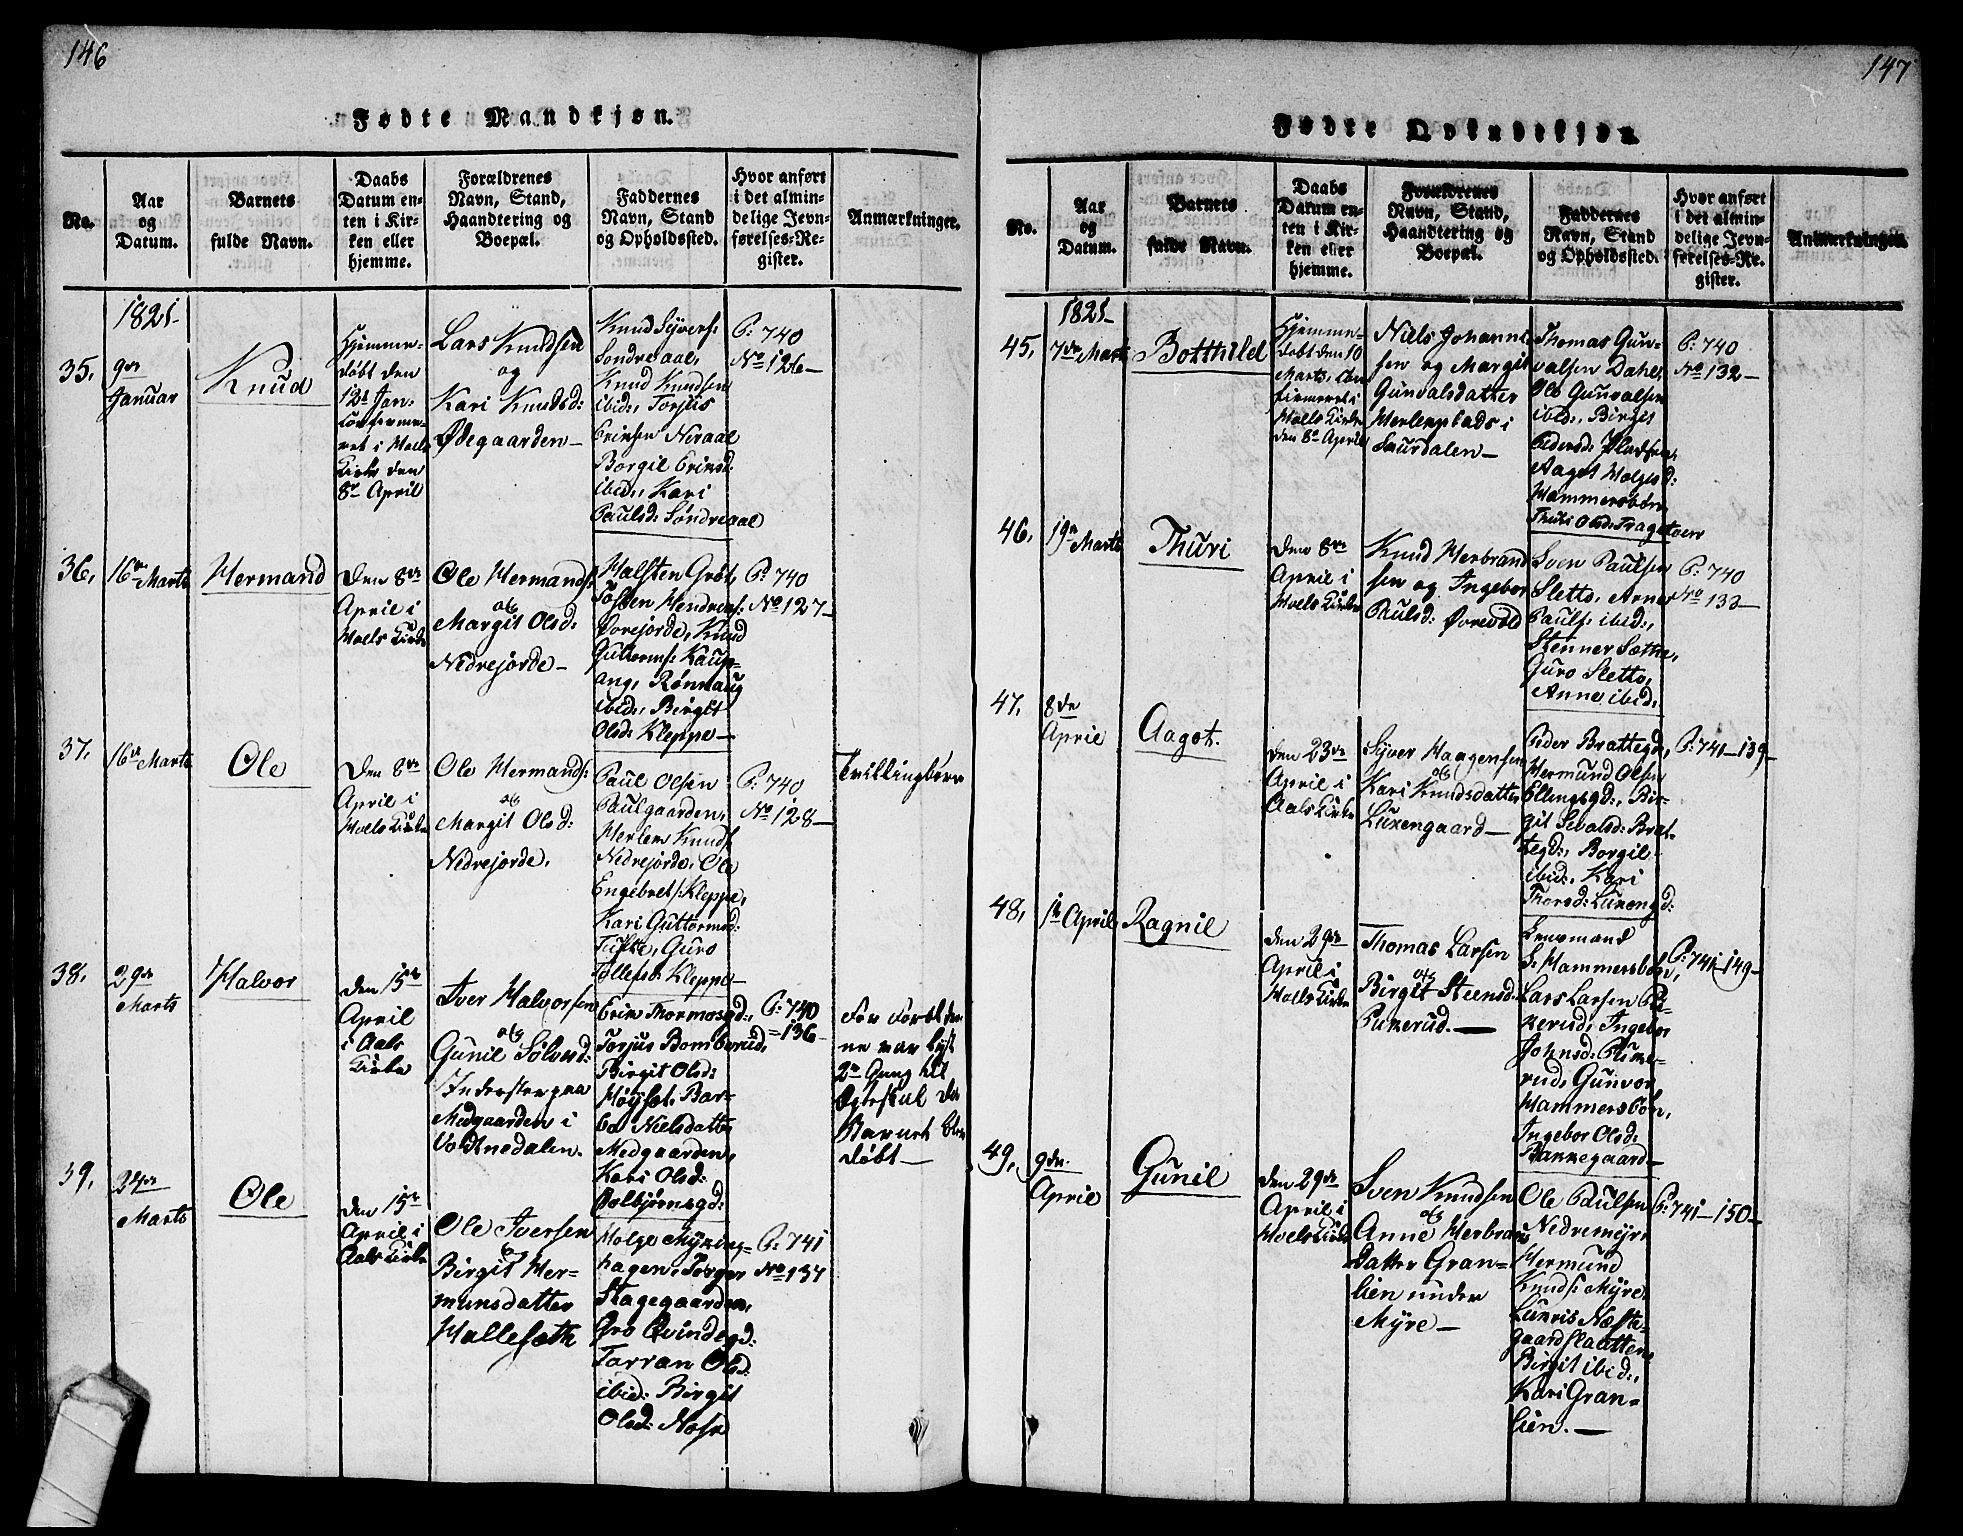 146
Fødte Mandkjøn.
No.
Aar
og
Datum.
Barnets
fulde Navn.
Daabs
Datum en-
ten i Kir-
ken eller
hjemme.
Forældrenes
Navn, Stand,
Haandtering og
Boepæl.
Faddernes
Navn, Stand
og Opholdssted.
Hvor anført
i det almin-
delige Jevn-
førelses-Re-
gister.
Anmærkninger.
1821
35.
9de
Januar
Knud
Hjemme-
døbt den
12t Jan.
Confirme-
ret i Hoels
Kirke den
8de April
Lars Knudsen
og
Kari Knudsd:
Ødegaarden
Knud Syvers:
Søndreaal,
Knud Knudsen
ibid:, Torjus
Erinsen Noraal
Borgil Erinsd:
ibid:, Kari
Paulsd: Søndreaal
P: 740
No 126
36.
16de Marts
Hermand
Den 8de
April i
Hoels Kirke
Ole Hermands:
og
Margit Olsd:
Nedrejorde
Halsten Grøt,
Tosten Hendrens:
Øvrejorde, Knud
Guttorms: Kaup-
ang, Rønnaug
ibid:, Birgit
Olsd: Kleppe
P: 740
No 127
37.
16de Marts
Ole
Den 8de
April i
Hoels Kirke
Ole Hermands:
og
Margit Olsd:
Nedrejorde.
Paul Olsen
Paulgaarden,
Herlem Knuds:
Nedrejorde, Ole
Engebrets: Kleppe,
Kari Guttormsd:
Tufte, Guro
Tollefsd: Kleppe
P: 740
No 128
Tvillingbørn
38.
29de
Marts
Halvor
den 15de
April
i Aals
Kirke
Iver Halvorsen
og
Gunil Solvesd:
Inderster paa
Medgaarden i
Votnedalen.
Erin Thormosgd:,
Torjus Bomberud,
Birgit Olsd:
Høyset, Bar-
bo Nielsdatter
Medgaarden,
Kari Olsd:
Golbjørnsgd:
P: 740
=136
Før Foræl dre
ne var lyst
2de Gang til
Egteskab da
Barnet blev
døbt
39.
24de
Marts
Ole
den 15de
April i
Aals Kirke
Ole Iversen
og
Birgit Her-
munsdatter
Hallesæth
Holge Myking-
hagen, Torger
Hagegaarden,
Gro Qvindegd:
Tarran Olsd:
ibid: Birgit
Olsd: Næss
P: 741
No 137
147
Fødte Qvindekjøn
No.
Aar
og
Datum.
Barnets
fulde Navn.
Daabs
Datum en-
ten i Kir-
ken eller
hjemme.
Forældrenes
Navn, Stand,
Haandtering og
Boepæl.
Faddernes
Navn, Stand
og Opholdssted.
Hvor anført
i det almin-
delige Jevn-
førelses-Re-
gister.
Anmærkninger.
1821
45.
7de Marts
Botthild
Hjemme-
døbt den 10
Marts, Con
firmeret i
Hoels Kirke
den 8de April
Niels Johanne
sen og Margit
Gunvalsdatter
Herlengplads i
Saurdalen
Thomas Gun-
valsen Dahle,
Ole Gunvalsen
ibid:, Birgit
Pedersd: Pladsen,
Aagot Holgesd:
Hammersbøn,
Thuri Olsd: Tragetveen
P: 740
No 132
46.
19de Marts
Thuri
Den 8de
April i
Hoels Kirke
Knud Herbrand
sen og Ingebor
Paulsd: Øvrevold
Sven Paulsen
Sletto, Arne
Pauls: ibid:,
Stenner Sæthe,
Guro Sletto,
Anne ibid:
P: 740
No 133
47.
8de
April
Aagot.
Den 23de
April i
Aals Kirke
Syver Haagensen
og
Kari Knudsdatter
Luxengaard
Peder Brattegd,
Hermund Olsen
Ellingsgd:, Bir-
git Sevalsd: Brat-
tegd:, Borgil
ibid:, Kari
Thorsd: Luxengd:
P: 741–139
48.
1te April
Ragnil
den 29de
April i
Hoels Kirke
Thomas Larsen
og
Birgit Steensd:
Pukerud.
Lensmand
S: Hammersbøn,
Lars Larsen Pu-
kerud, Ingebor
Johnsd: Puke-
rud, Gunvor
Hammersbøn,
Ingebor Olsd:
Bakkegaard
P: 741–149
49.
9de
April
Gunil
den 29de
April i
Hoels Kirke
Sven Knudsen
og
Anne Herbrands
datter Gran-
lien under
Myre
Ole Paulsen
Nedremyre
Hermund
Knuds: Myre,
Lunris Næste-
gaardslaatten
Birgit ibid:,
Kari Gran-
lien.
P: 741–150